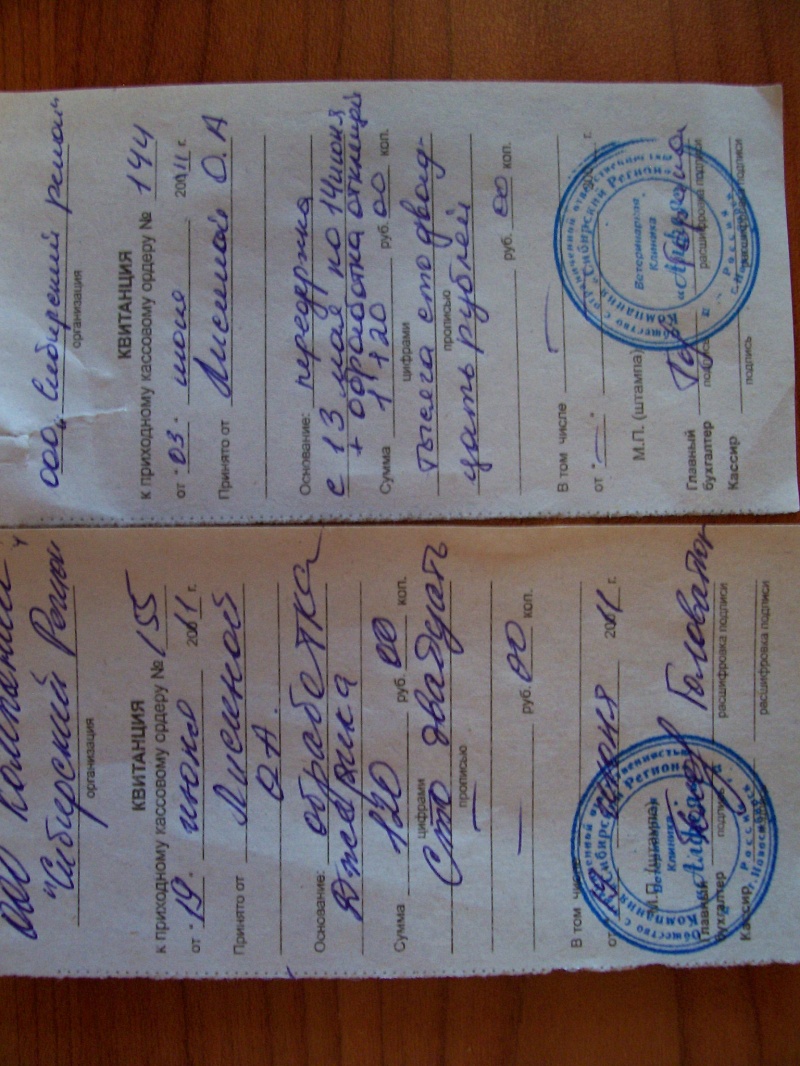 ООО "Сибирский регион"
организация
КВИТАНЦИЯ
к приходному кассовому ордеру № 144
от "03" июня 2011 г.
Принято от Лисиной О.А
Основание: передержка
с 13 мая по 14 июня
+ обработка от клещей
Сумма 1120 руб. 00 коп.
цифрами
тысяча сто двад-
прописью
цать рублей
руб. 00 коп.
В том числе
от " " г.
М.П. (штампа)
Главный
бухгалтер
подпись расшифровка подписи
Кассир
подпись расшифровка подписи
Общество с ограниченной ответственностью
Компания «Сибирский Регион»
Ветеринарная
Клиника
Россия
ООО Компания
"Сибирский Регион"
организация
КВИТАНЦИЯ
к приходному кассовому ордеру № 155
от "19" июня 2011 г.
Принято от Лисиной
О.А.
Основание: обработка
Джерика
Сумма 120 руб. 00 коп.
цифрами
Сто двадцать
прописью
руб. 00 коп.
В том числе
от "19" июня 2011 г.
М.П. (штампа)
Главный
бухгалтер
подпись расшифровка подписи
Кассир
расшифровка подписи
Общество с ограниченной ответственностью
Компания «Сибирский Регион»
Ветеринарная
Клиника
Россия